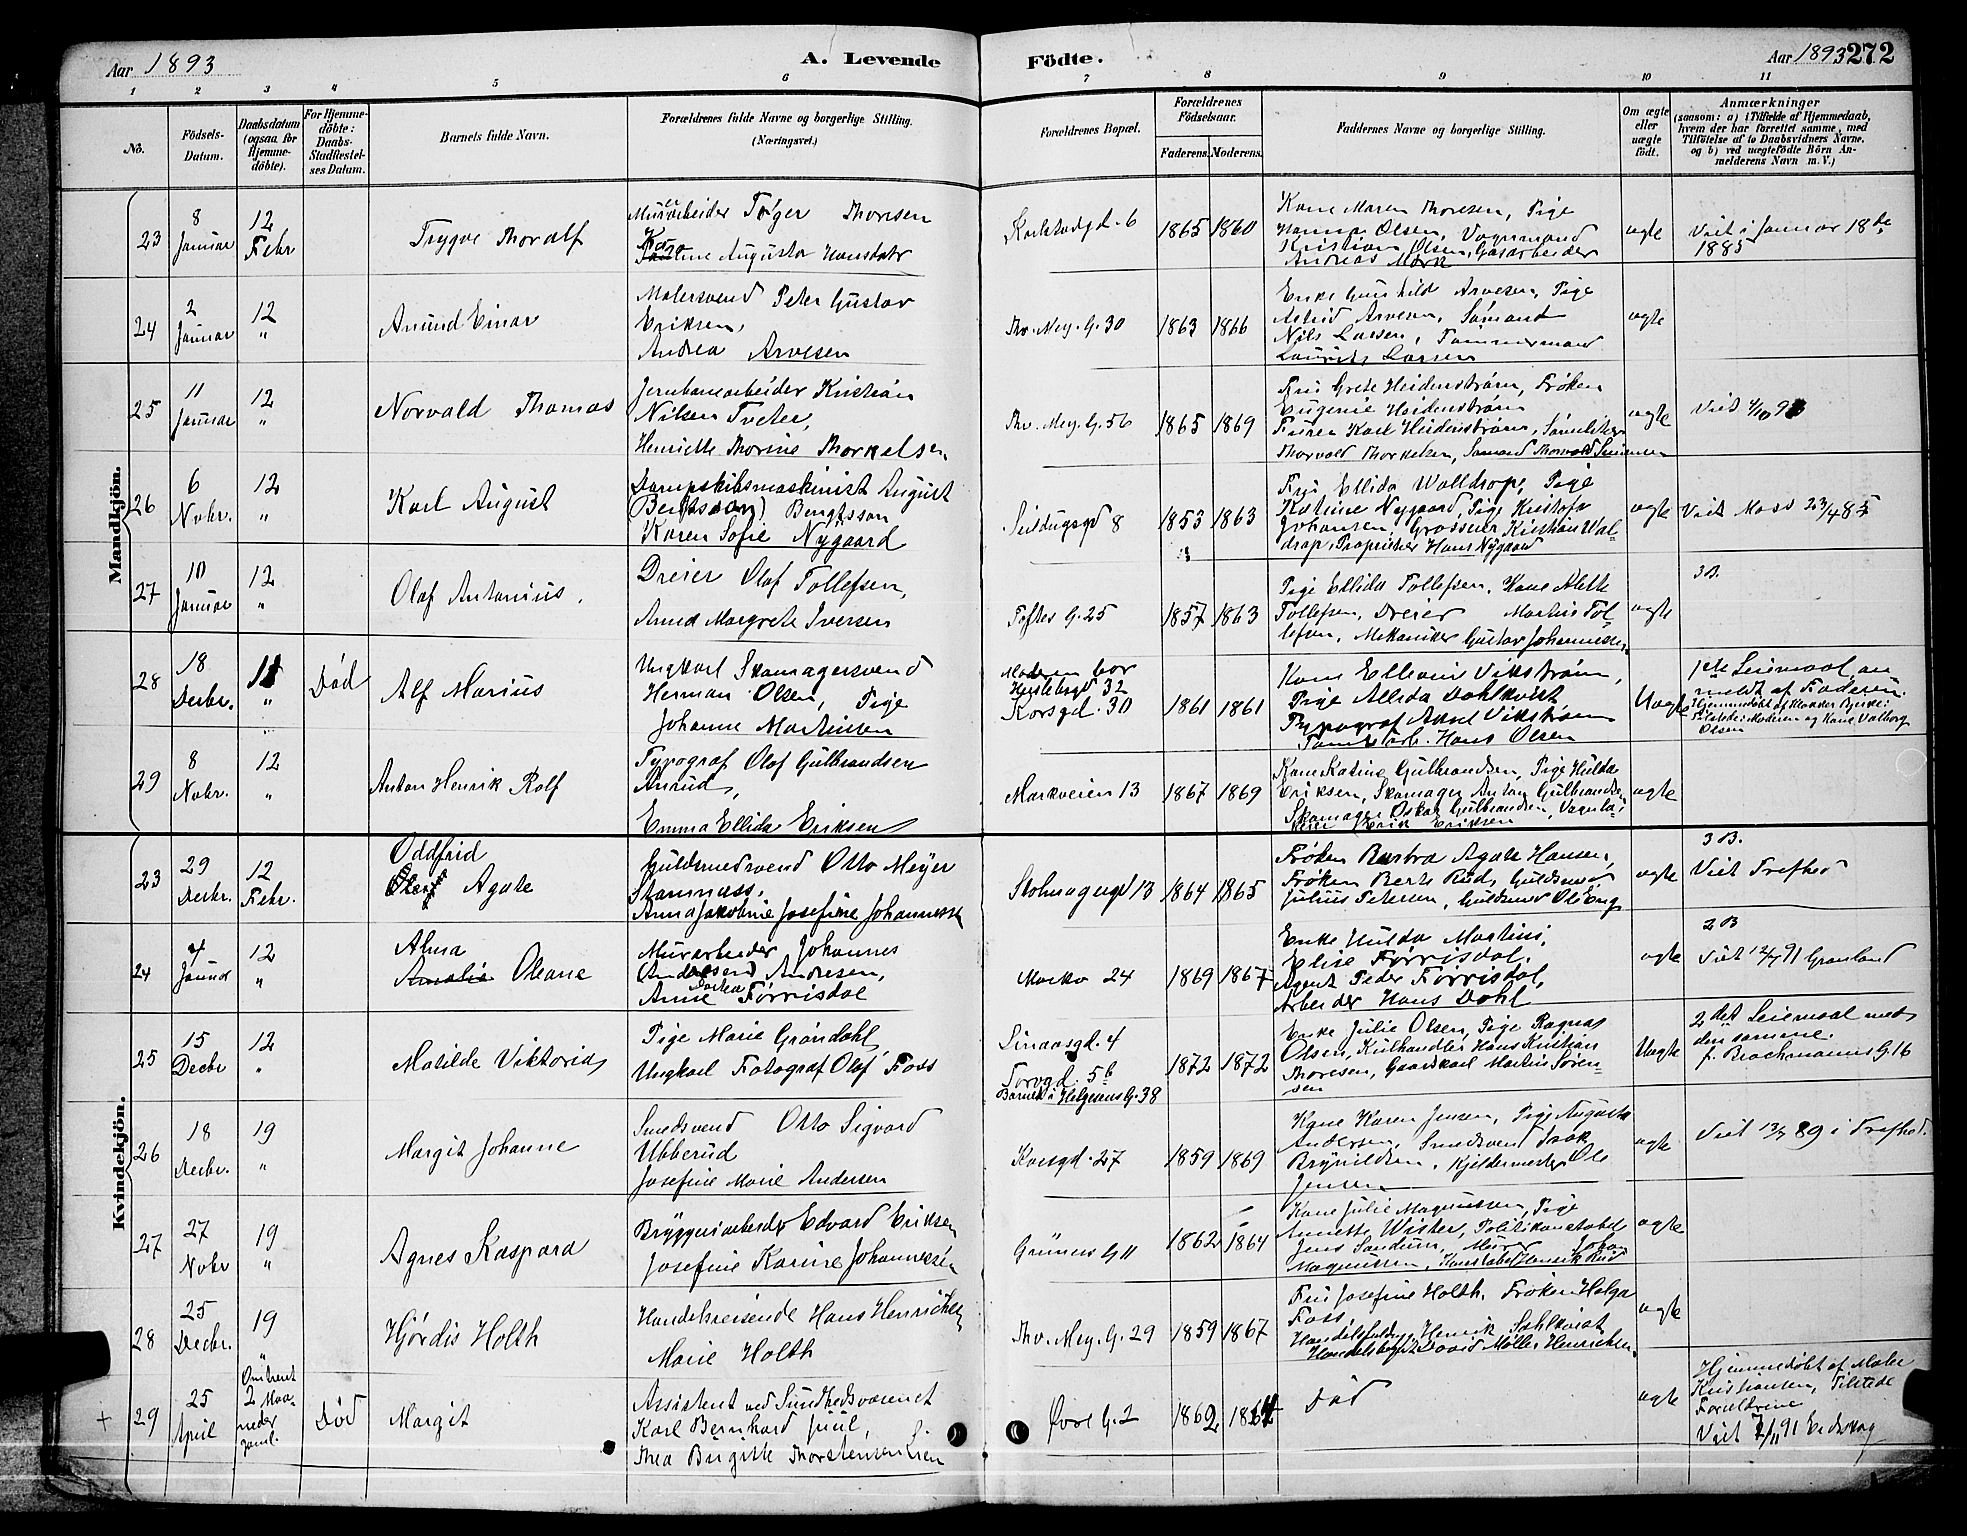 Aar 1893
A. Levende Födte.
Aar 1893 272
1 2 3 4 5 6 7 8 9 10 11
No.
Födsels-Datum.
Daabsdatum (ogsaa for Hjemme-döbte).
For Hjemme-döbte: Daabs-Stadfæstel-ses Datum.
Barnets fulde Navn.
Forældrenes fulde Navne og borgerlige Stilling. (Næringsvei.)
Forældrenes Bopæl.
Forældrenes Födselsaar.
Faderens. Moderens.
Faddernes Navne og borgerlige Stilling.
Om ægte eller uægte födt.
Anmærkninger
(saasom: a) i Tilfælde af Hjemmedaab,
hvem der har forrettet samme, med
Tilföielse af to Daabsvidners Navne,
og b) ved uægtefödte Börn An-
melderens Navn m. V.)
Mandkjön.
23 8 Januar 12 Febr Trygve Thoralf
Murarbeider Tøger Thoresen
Augusta Hansdatr
Karlstadgd. 6 1865 1860
Kone Maren Thoresen, Pige
Hanna Olsen, Vognmand
Kristian Olsen, Gasarbeider
Andreas Mørk
ægte
Viet i Januar 18de
1885
24 2 Januar 12 " Amund Einar
Malersvend Peter Gustav
Eriksen,
Andrea Arvesen
Thv. Mey. G. 30 1863 1866
Enke Gunhild Arvesen, Pige
Astrid Arvesen, Sømand
Nils Larsen, Tømmermand
Laurits Larsen
ægte
25 11 Januar 12 " Norvald Thomas
Jernbanearbeider Kristian
Nilsen Tveter,
Henriette Thorine Thorkelsen
Thv. Mey. G. 56 1865 1869
Fru Grete Heidenstrøm, Frøken
Eugenie Heidenstrøm
Karl Heidenstrøm,
Thorvald Thorkelsen, Sømand Thorvald Simensen
ægte
Viet
26 6 Nobr. 12 " Karl August
Dampskibsmaskinist August
(Bentsson) Bengtsson
Karen Sofie Nygaard
Seildugsgd 8 1853 1863
Fru Ellida Walldrop, Pige
Katrine Nygaard, Pige Kristofa
Johansen, Grosserer Kristian Wal-
drop, Proprietær Hans Nygaard
ægte
Viet Moss 23/4 85
27 10 Januar 12 " Olaf Antonius.
Dreier Olaf Tollefsen,
Anna Margrete Iversen
Toftes G. 25 1857 1863
Pige Ellida Tollefsen, Kone Alette
Tollefsen, Dreier Martin Tol-
lefsen, Mekaniker Gustav Johannessen
ægte
3 B.
28 18 Decbr. " Død Alf Marius
Ungkarl Skomagersvend
Herman Olsen, Pige
Johanne Martinsen
Moderen bor
Herslebsgd 32
Korsgd. 30 1861 1861
Kone Ellevine Vikstrøm,
Pige Allida Dahlkvist
Typograf Axel Vikstrøm
Hans Olsen
Uægte
1ste Leiermaal, an-
meldt af Faderen.
Hjemmedøbt af Klokker Bjerke:
Tilstede: Moderen og Kone Valborg
Olsen
29 8 Nobr. 12 " Anton Henrik Rolf
Typograf Olaf Gulbrandsen
Anrud,
Emma Ellida Eriksen
Markveien 13 1867 1869
Kone Katrine Gulbrandsen, Pige Hulda
Eriksen, Skomager Anton Gulbrandsen
Skomager Oskar Gulbrandsen,
Erik Eriksen
ægte
Kvindekjön.
23 29 Decbr. 12 Febr. Oddfrid Agate
Guldsmedsvend Otto Meyer
Stamnæss,
Anna Jakobine Josefine Johannessen
Stolmagergd 13 1864 1865
Frøken Barbra Agate Hansen,
Frøken Berte Rud, Guldsmed
Julius Petersen, Guldsmed Ole Eng
ægte
3 B.
Viet Trefhed
24 4 Januar 12 " Alma
Amalie Oleane
Murarbeider Johannes
(Andersen) Andresen,
Anne Dorthea Førrisdal
Markv 24 1869 1867
Enke Hulda Martins,
Elise Førrisdal,
Agent Peder Førrisdal,
Arbeider Hans Dahl
ægte
2 B
Viet 12/7 91 Grønland
25 15 Decbr 12 " Matilde Viktoria
Pige Marie Grøndahl
Ungkarl Fotograf Olaf Foss
Sinaasgd. 4
Torvgd. 5b
Barnet i Helgesens G. 38
1872 1872
Enke Julie Olsen, Pige Ragna
Olsen, Kulhandler Hans Kristian
Thoresen, Gaardskarl Martin Søren-
sen
Uægte
2det Leiermaal med
den samme.
f. Brochmanns G. 16
26 18 Decbr. 19 " Margit Johanne
Smedsvend Otto Sigvard
Ubberud
Josefine Marie Andersen
Korsgd. 27 1859 1869
Kone Karen Jensen, Pige Augusta
Andersen, Smedsvend Isak
Brynildsen, Kjeldermester Ole
Jensen
ægte
Viet 13/ 89 i Trefhed.
27 27 Nobr 19 " Agnes Kaspara
Bryggeriarbeider Edvard Eriksen
Josefine Karine Johannessen
Grüners G 11 1862 1864
Kone Julie Magnussen, Pige
Annette Wister, Politikonstabel
Jens Sandum, Murer Johan
Magnussen, Konstabel Henrik Rud
ægte
28 25 Decbr. 19 " Hjørdis Holth
Handelsreisende Hans Henrichsen
Marie Holth
Thv. Mey. G. 29 1859 1867
Fru Josefine Holth, Frøken Helga
Foss
Henrik Sahlkvist
David Møller Henrichsen.
ægte
+ 29 25 April Omtrent 2 Maa-neder gaml. Død Margit
Assistent ved Sundhedsvæsenet
Karl Bernhard Juul,
Thea Birgitte Thorstensen Lien
Øvre G. 2 1862
Død
ægte
Hjemmedøbt af Maler
Kristiansen, Tilstede
Forældrene
Viet 91 Eidskog